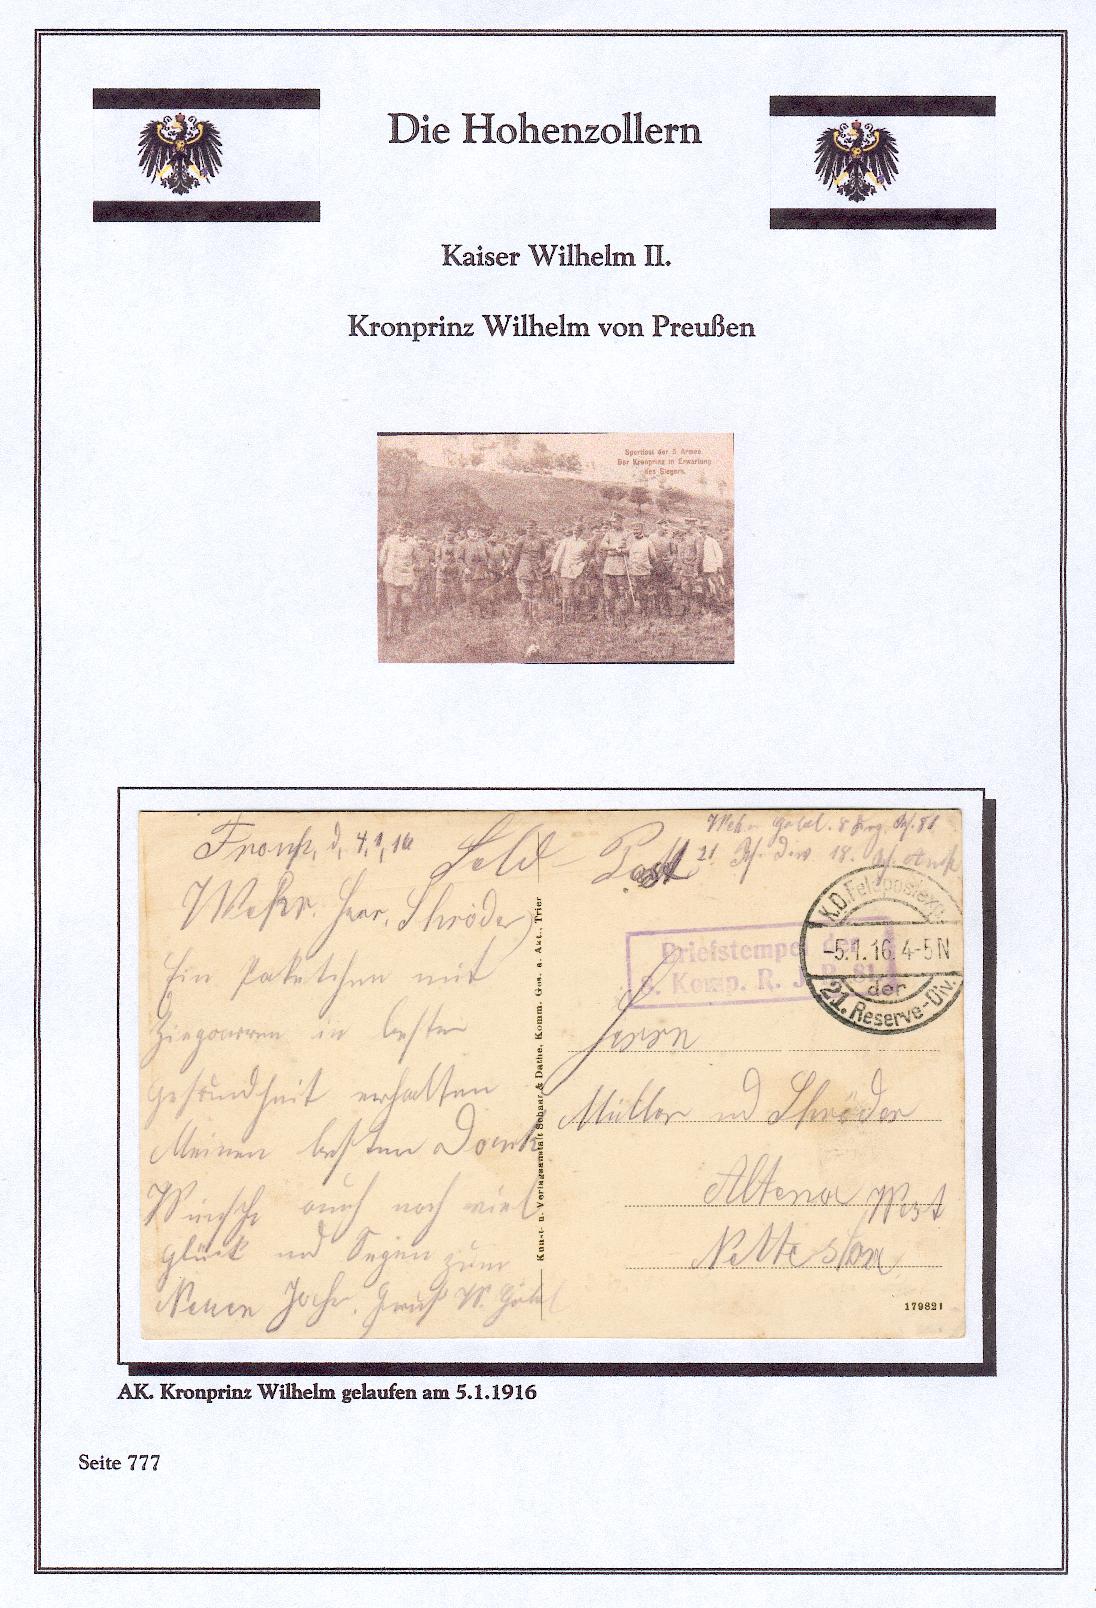 Die Hohenzollern
Kaiser Wilhelm II.
Kronprinz Wilhelm von Preußen
Sportfest der 5 Armee
Der Kronprinz in Erwartung
des Siegers.
Feld-Post
21. Jf. Div. 18.
Front, d, 4,1,16
Herr. Schröder
Ein Paketchen mit
Ziegaarren in besten
gesundheit erhalten
Meinen besten Dank
Wünsche auch noch viel
glück und Segen zum
Neuen Jahr. Gruß W. Göbel
Kunst- u. Verlagsanstalt Schaar & Dathe, Komm. Ges. a. Akt., Trier
Briefstempel der
8. Komp. R. J. R. 81
K.D. Feldpostexp.
-5.1.16. 4-5N
der
21. Reserve-Div.
Herrn
Müller und Schröder
Altena West
Nette
179821
AK. Kronprinz Wilhelm gelaufen am 5.1.1916
Seite 777